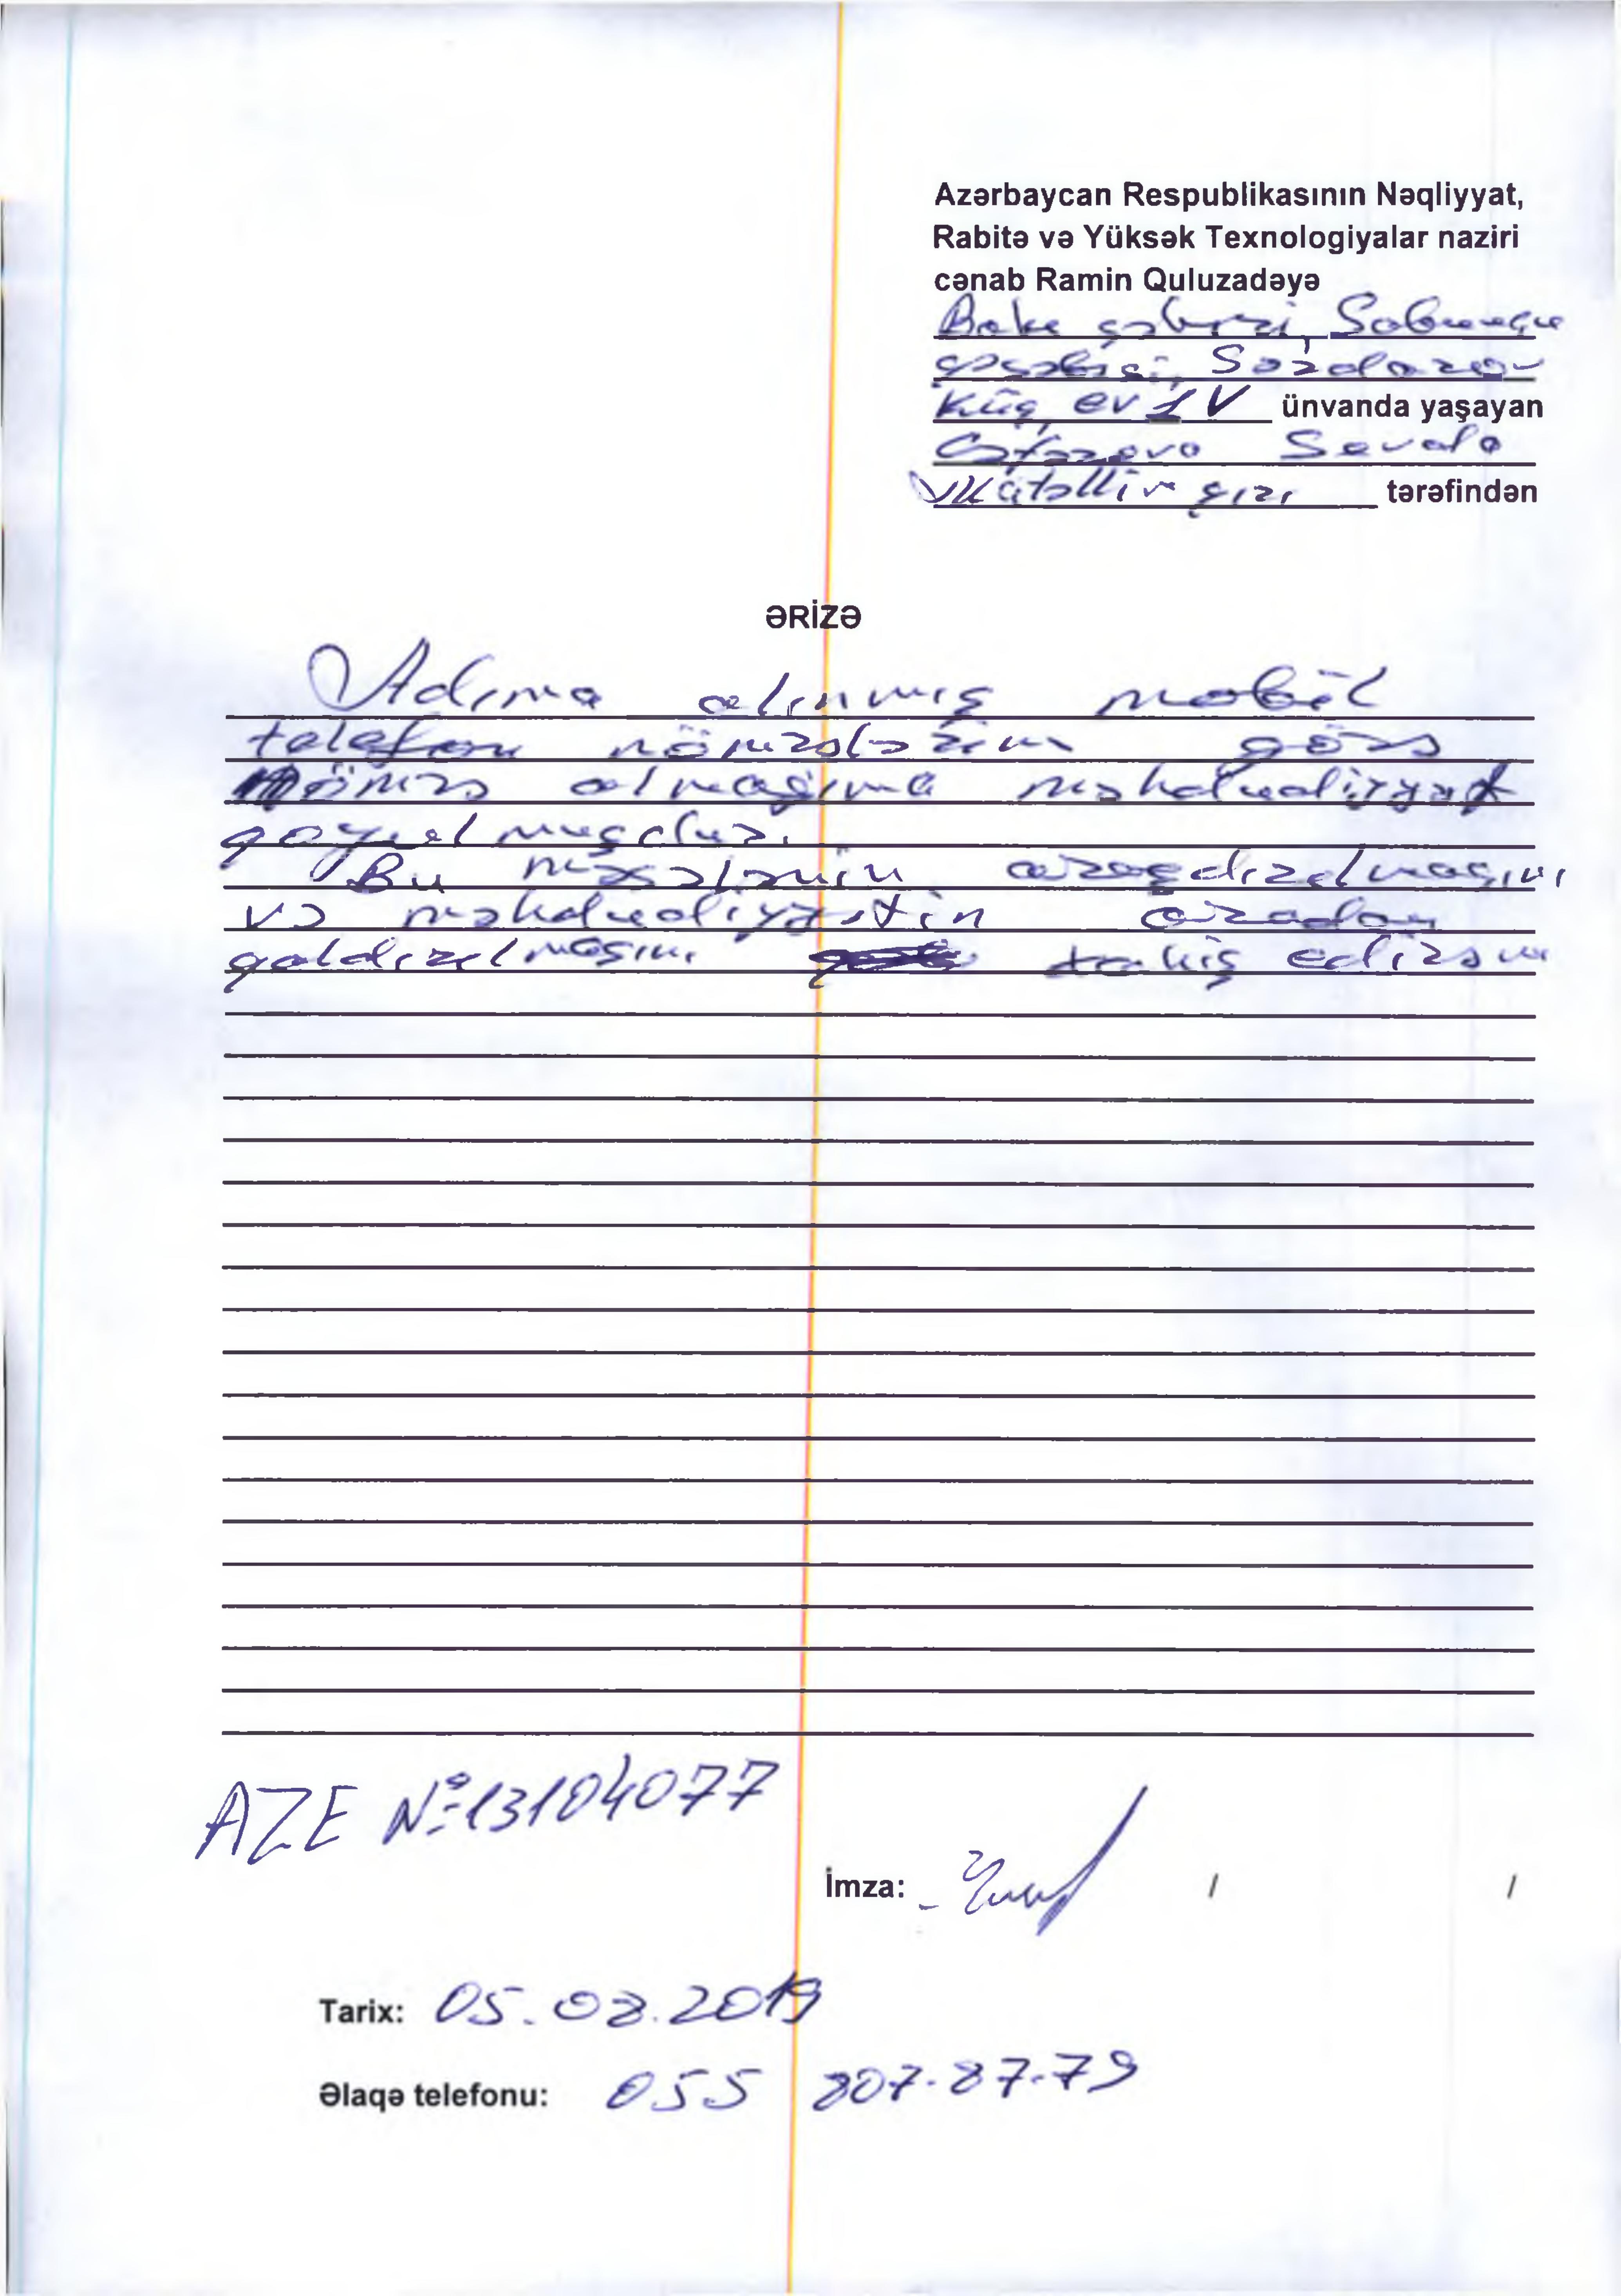 Azərbaycan Respublikasının Nəqliyyat,
Rabitə və Yüksək Texnologiyalar naziri
cənab Ramin Quluzadəyə
Bakı şəhəri, Sabunçu
qəsəbəsi,
Küç, ev 1V ünvanda yaşayan
Sevda
qızı tərəfindən
ƏRİZƏ
Adıma alınmış mobil
telefon nömrələrinə görə
nömrə almağıma məhdudiyyət
qoyulmuşdur.
Bu məsələnin araşdırılmasını
və məhdudiyyətin aradan
qaldırılmasını xahiş edirəm
AZE №13104077
İmza:
/ /
Tarix: 05.02.2019
Əlaqə telefonu: 055 807-87-79